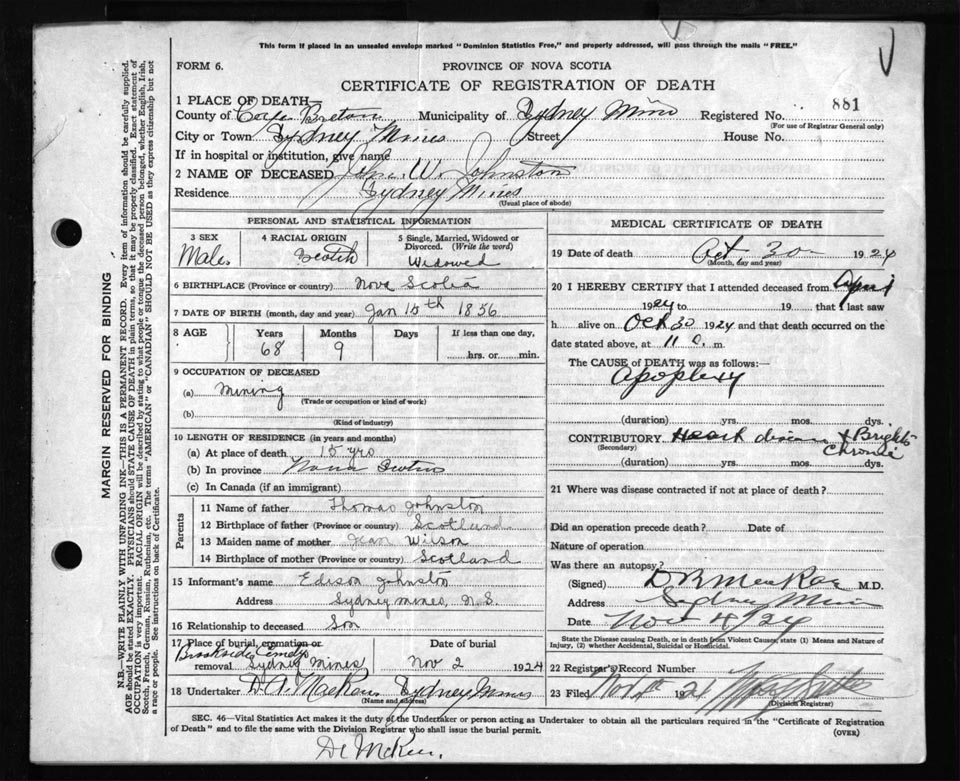 This form if placed in an unsealed envelope marked "Dominion Statistics Free," and properly addressed, will pass through the mails "FREE."
FORM 6.
PROVINCE OF NOVA SCOTIA
CERTIFICATE OF REGISTRATION OF DEATH
881
1 PLACE OF DEATH
County of Cape Breton Municipality of Sydney Mines Registered No.
(For use of Registrar General only)
City or Town Sydney Mines Street House No.
If in hospital or institution, give name
2 NAME OF DECEASED John W. Johnston
Residence Sydney Mines
(Usual place of abode)
PERSONAL AND STATISTICAL INFORMATION
3 SEX 4 RACIAL ORIGIN 5 Single, Married, Widowed or Divorced. (Write the word)
Male Scotch Widowed
6 BIRTHPLACE (Province or country) Nova Scotia
7 DATE OF BIRTH (month, day and year) Jan 15th 1856
8 AGE Years Months Days If less than one day,
68 9 hrs. or min.
9 OCCUPATION OF DECEASED
(a) Mining
(Trade or occupation or kind of work)
(b)
(Kind of industry)
10 LENGTH OF RESIDENCE (in years and months)
(a) At place of death 15 yrs
(b) In province Nova Scotia
(c) In Canada (if an immigrant)
Parents
11 Name of father Thomas Johnston
12 Birthplace of father (Province or country) Scotland
13 Maiden name of mother Jean Wilson
14 Birthplace of mother (Province or country) Scotland
15 Informant's name Edison Johnston
Address Sydney Mines, N.S.
16 Relationship to deceased Son
17 Place of burial, cremation or removal Date of burial
Brookside Cemety Sydney Mines Nov 2 1924
18 Undertaker D. A. MacRae Sydney Mines
(Name and address)
MEDICAL CERTIFICATE OF DEATH
19 Date of death Oct, 30 1924
(Month, day and year)
20 I HEREBY CERTIFY that I attended deceased from April
1924 to 19 that I last saw
h alive on Oct 30 1924 and that death occurred on the
date stated above, at 11 a. m.
The CAUSE of DEATH was as follows:—
Apoplexy
(duration) yrs. mos. dys.
CONTRIBUTORY Heart disease & Brights Chronic
(Secondary)
(duration) yrs. mos. dys.
21 Where was disease contracted if not at place of death?
Did an operation precede death? Date of
Nature of operation
Was there an autopsy?
(Signed) M.D.
Address Sydney Mines
Date Nov 4/24
State the Disease causing Death, or in death from Violent Causes, state (1) Means and Nature of Injury, (2) whether Accidental, Suicidal or Homicidal.
22 Registrar's Record Number
23 Filed Nov 192
(Division Registrar)
SEC. 46—Vital Statistics Act makes it the duty of the Undertaker or person acting as Undertaker to obtain all the particulars required in the "Certificate of Registration
of Death" and to file the same with the Division Registrar who shall issue the burial permit.
(OVER)
MARGIN RESERVED FOR BINDING
N.B.—WRITE PLAINLY WITH UNFADING INK—THIS IS A PERMANENT RECORD. Every item of information should be carefully supplied.
AGE should be stated EXACTLY. PHYSICIANS should STATE CAUSE OF DEATH in plain terms, so that it may be properly classified. Exact statement of
OCCUPATION is very important. RACIAL ORIGIN will be described by stating to what people or tongue the deceased person belonged, whether English, Irish,
Scotch, French, German, Russian, Ruthenian, etc. The terms "AMERICAN" or "CANADIAN" SHOULD NOT BE USED as they express citizenship but not
a race or people. See instructions on back of Certificate.